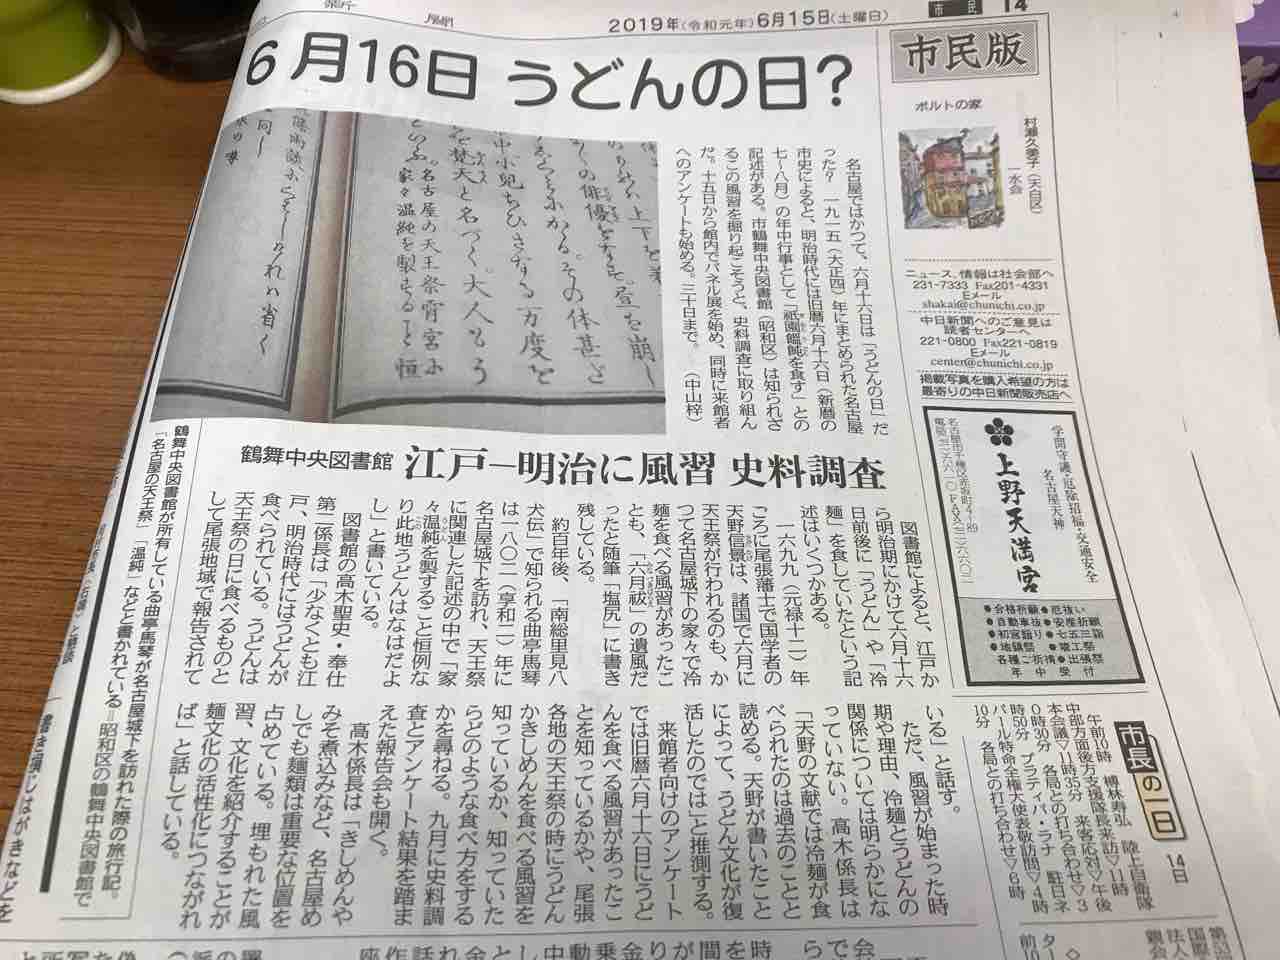 聞
2019年(令和元年)6月15日(土曜日)
市民
14
6月16日 うどんの日?
市民版
ボルトの家
村瀬久美子(天白区)
一水会
名古屋ではかつて、六月十六日は「うどんの日」だ
った? 一九一五(大正四)年にまとめられた名古屋
市史によると、明治時代には旧暦六月十六日(新暦の
七~八月)の年中行事として「祇園饂飩を食す」との
記述がある。市鶴舞中央図書館(昭和区)は知られざ
るこの風習を掘り起こそうと、史料調査に取り組ん
だ。十五日から館内でパネル展を始め、同時に来館者
へのアンケートも始める。三十日まで。 (中山梓)
鶴舞中央図書館 江戸―明治に風習 史料調査
図書館によると、江戸か
ら明治期にかけて六月十六
日前後に「うどん」や「冷
麺」を食していたという記
述はいくつかある。
一六九九(元禄十二)年
ころに尾張藩士で国学者の
天野信景は、諸国で六月に
天王祭が行われるのも、か
つて名古屋城下の家々で冷
麺を食べる風習があったこ
とも、「六月祓」の遺風だ
ったと随筆「塩尻」に書き
残している。
約百年後、「南総里見八
犬伝」で知られる曲亭馬琴
は一八〇二(享和二)年に
名古屋城下を訪れ、天王祭
に関連した記述の中で「家
々温純を製すること恒例な
り此地うどんはなはだよ
し」と書いている。
図書館の高木聖史・奉仕
第二係長は「少なくとも江
戸、明治時代にはうどんが
食べられている。うどんは
天王祭の日に食べるものと
して尾張地域で報告されて
いる」と話す。
ただ、風習が始まった時
期や理由、冷麺とうどんの
関係については明らかにな
っていない。高木係長は
「天野の文献では冷麺が食
べられたのは過去のことと
読める。天野が書いたこと
によって、うどん文化が復
活したのでは」と推測する。
来館者向けのアンケート
では旧暦六月十六日にうど
んを食べる風習があったこ
とを知っているかや、尾張
各地の天王祭の時にうどん
かきしめんを食べる風習を
知っているか、知っていた
らどのような食べ方をする
かを尋ねる。九月に史料調
査とアンケート結果を踏ま
えた報告会も開く。
高木係長は「きしめんや
みそ煮込みなど、名古屋め
しでも麺類は重要な位置を
占めている。埋もれた風
習、文化を紹介することが
麺文化の活性化につながれ
ば」と話している。
鶴舞中央図書館が所有している曲亭馬琴が名古屋城下を訪れた際の旅行記。
「名古屋の天王祭」「温純」などと書かれている=昭和区の鶴舞中央図書館で
ニュース、情報は社会部へ
231-7333 Fax201-4331
Eメール
shakai@chunichi.co.jp
中日新聞へのご意見は
読者センターへ
221-0800 Fax221-0819
Eメール
center@chunichi.co.jp
掲載写真を購入希望の方は
最寄りの中日新聞販売店へ
学問守護・厄除招福・交通安全
名古屋天神
上野天満宮
●合格祈願 ●厄祓い
●自動車祓 ●安産祈願
●初宮詣り ●七五三詣
●地鎮祭 ●竣工祭
各種ご祈祷 ●出張祭
年中受付
市長の一日
14日